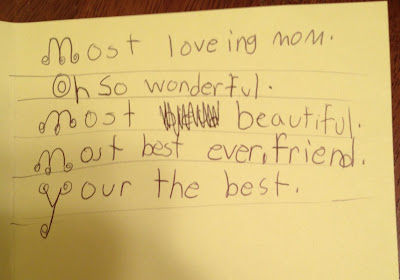 Most loveing mom.
Oh so wonderful.
Most beautiful.
Most best ever, friend.
Your the best.